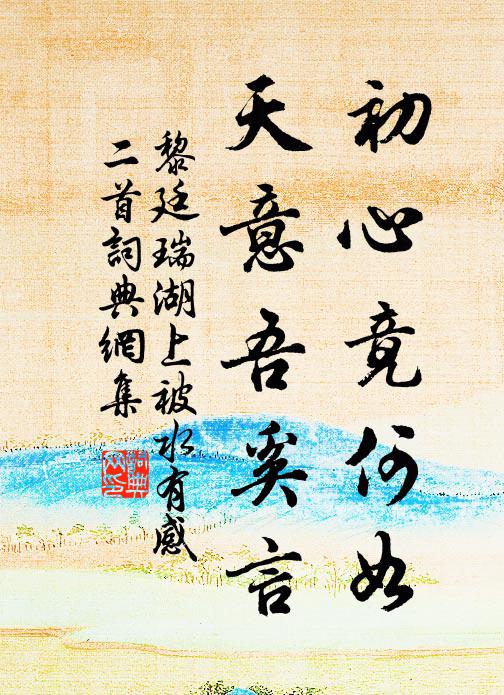 初心竟何如
天意吾奚言
黎廷瑞湖上被水有感
二首詞典網集